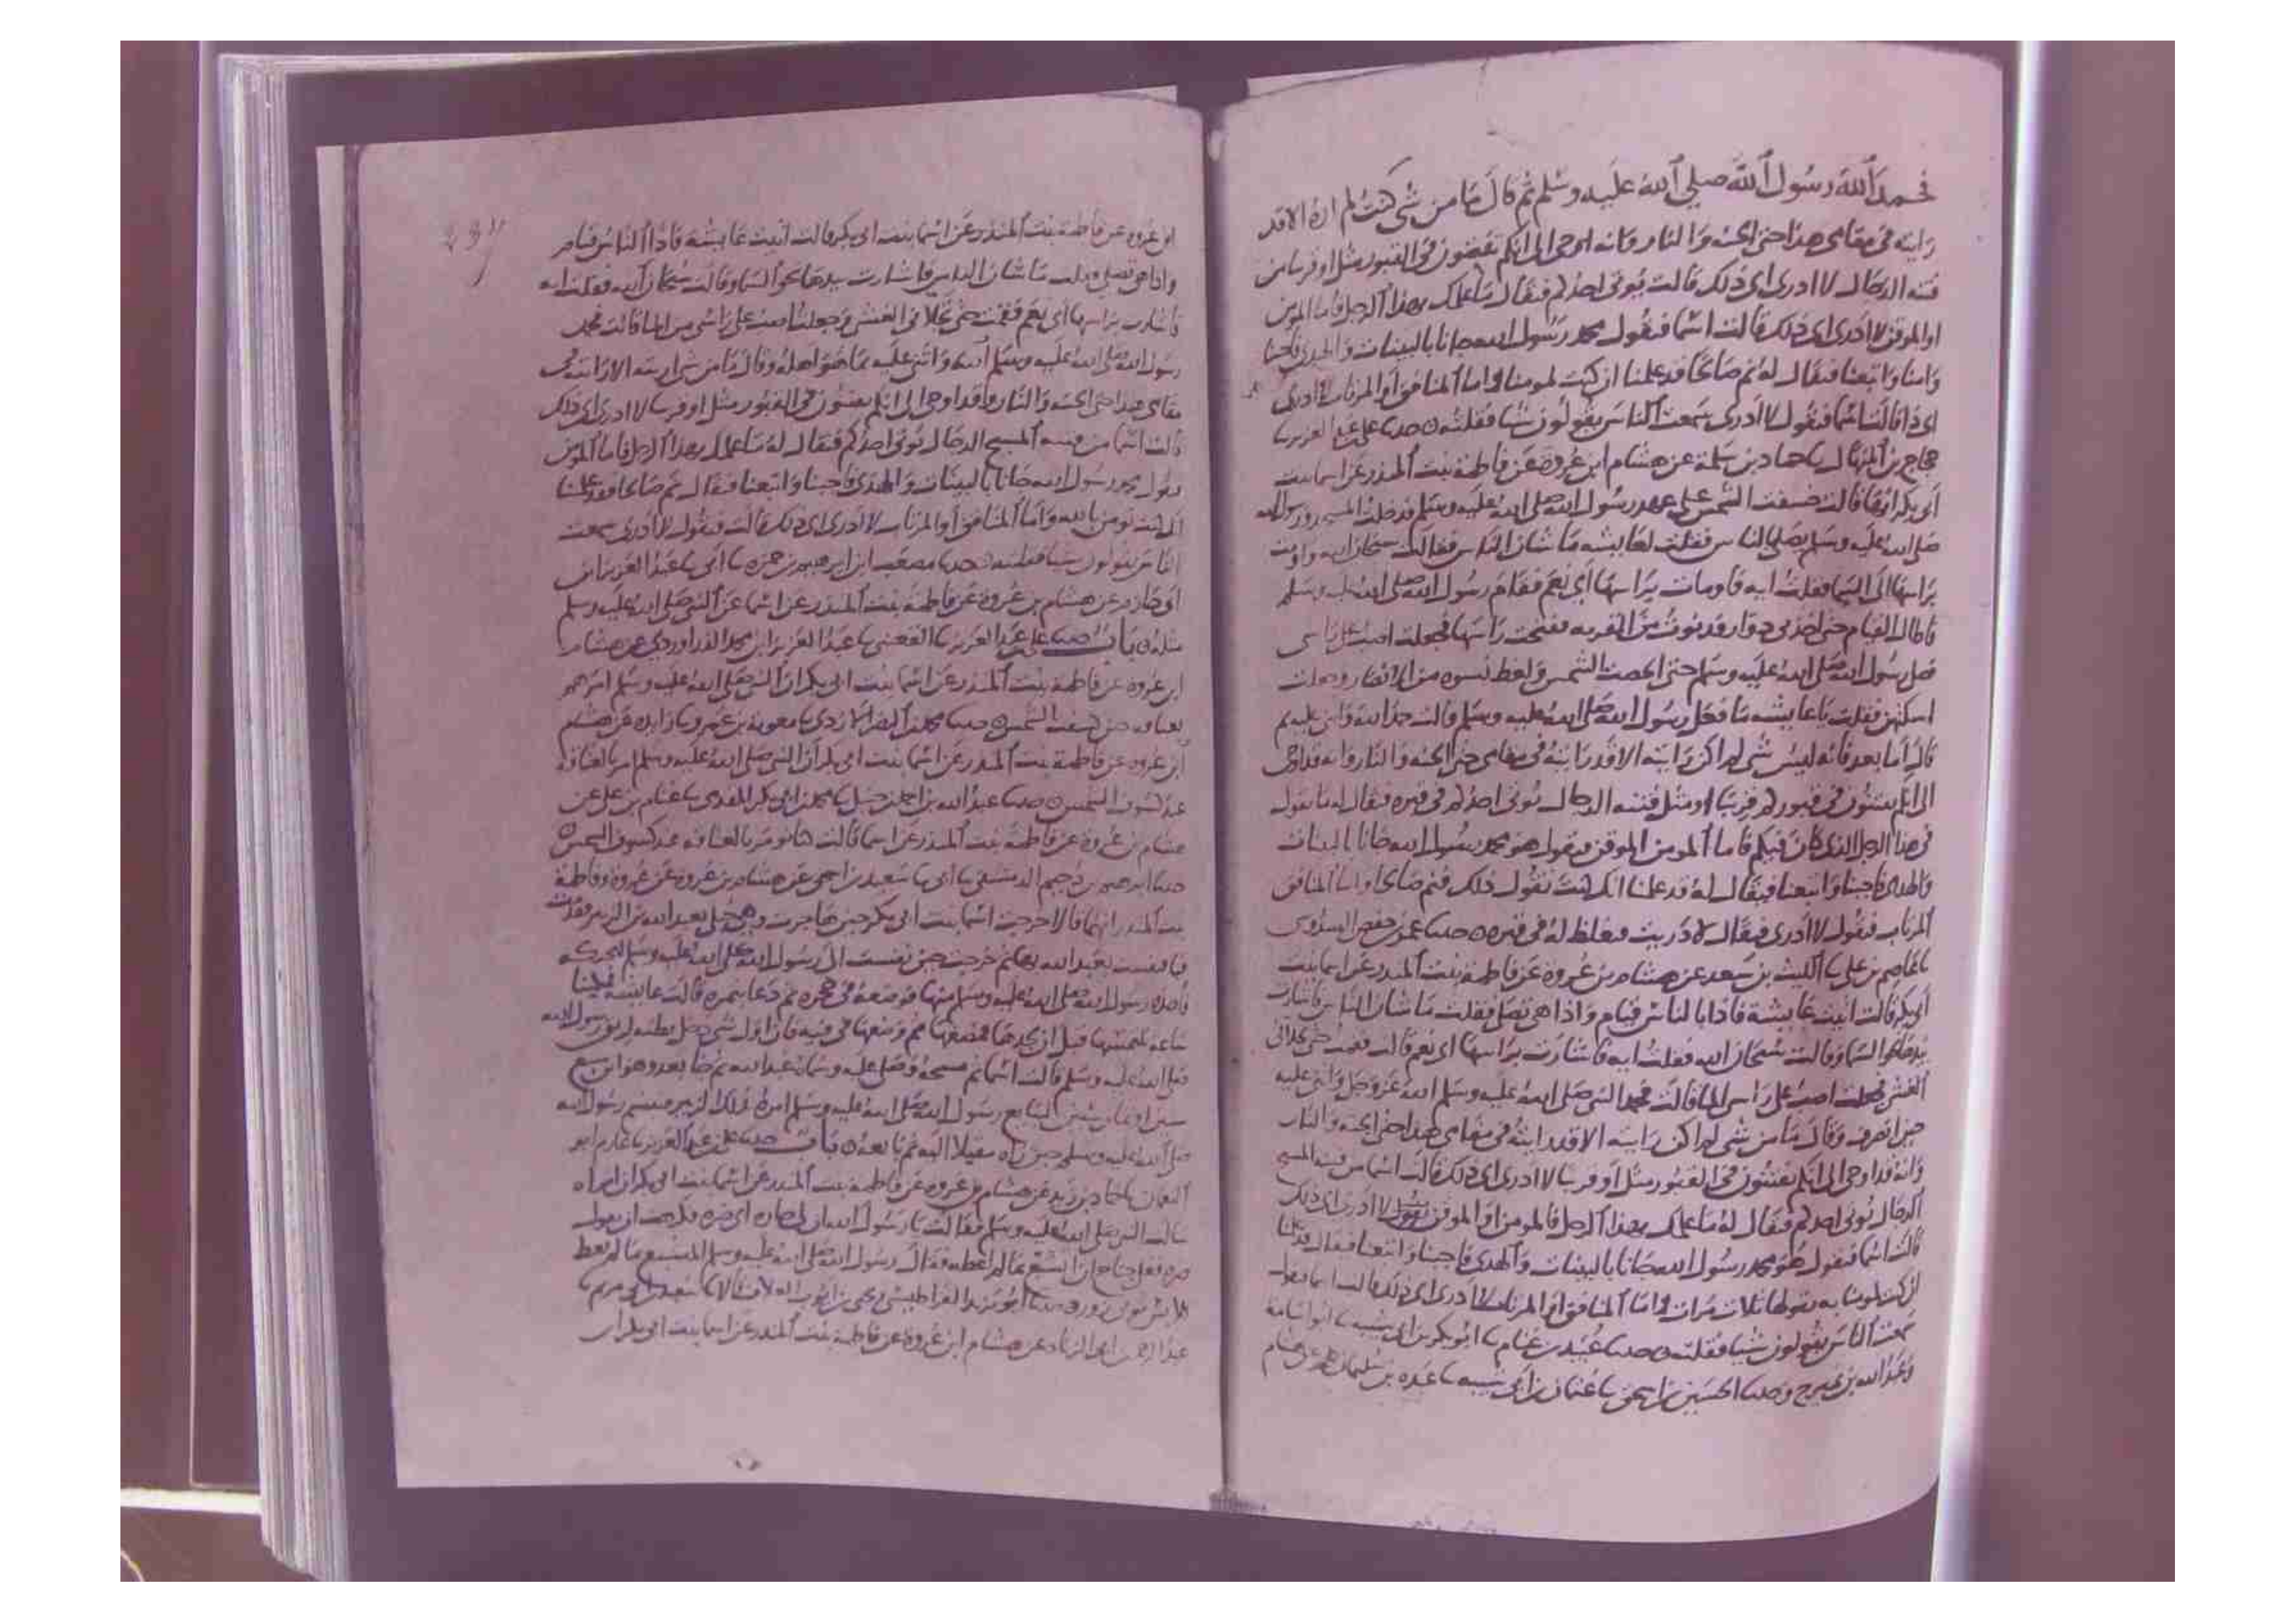 فحمد الله رسول الله صلي الله عليه وسلم ثم قال ما من شي كنت لم اره الا قد
رايته في مقامي هذا حتى الجنه والنار وانه اوحي الي انكم تفتنون في القبور مثل او قريبا من
فتنه الدجال لا ادري اي ذلك قالت يوتى احدكم فيقال ما علمك بهذا الرجل فاما المومن
او الموقن لا ادري اي ذلك قالت اسما فيقول محمد رسول الله جانا بالبينات والهدى فاجبنا
وامنا واتبعنا فيقال له نم صالحا قد علمنا ان كنت لمومنا واما المنافق او المرتاب لا ادري
اي ذا قالت اسما فيقول لا ادري سمعت الناس يقولون شيا فقلته حدثنا علي بن عبد العزيز نا
حجاج بن المنهال نا حماد بن سلمة عن هشام ابن عروة عن فاطمة بنت المنذر عن اسما بنت
ابي بكر انها قالت خسفت الشمس على عهد رسول الله صلى الله عليه وسلم فدخلت المسجد ورسول الله
صلى الله عليه وسلم يصلي بالناس فقلت لعايشه ما شان الناس فقالت سبحان الله واومت
براسها الى السما فقلت ايه فاومات براسها اي نعم فقام رسول الله صلى الله عليه وسلم
فاطال القيام حتى اخذني دوار فدنوت من القربه ففتحت راسها فجعلت اصب على راسي
فصلى رسول الله صلى الله عليه وسلم حتى انجلت الشمس ولغط نسوه من الانصار وجعلت
اسكتهن فقلت يا عايشه ما فعل رسول الله صلى الله عليه وسلم قالت حمد الله واثنى عليه ثم
قال اما بعد فانه ليس شي لم اكن رايته الا قد رايته في مقامي حتى الجنه والنار وانه قد اوحي
الي انكم تفتنون في قبوركم قريبا او مثل فتنه الدجال يوتى احدكم في قبره فيقال له ما تقول
في هذا الرجل الذي كان فيكم فاما المومن الموقن فيقول هو محمد رسول الله جانا بالبينات
والهدى فاجبنا واتبعنا فيقال له قد علمنا انك كنت تقول ذلك فنم صالحا واما المنافق
المرتاب فيقول لا ادري فيقال لا دريت فيغلظ له في قبره حدثنا عمر بن حفص السدوسي
نا عاصم بن علي نا الليث بن سعد عن هشام بن عروة عن فاطمة بنت المنذر عن اسما بنت
ابي بكر قالت اتيت عايشة فاذا بالناس قيام واذا هي تصلي فقلت ما شان الناس فاشارت
بيدها نحو السما وقالت سبحان الله فقلت ايه فاشارت براسها اي نعم قالت فقمت حتى تجلاني
الغشي فجعلت اصب على راسي الما قالت فحمد النبي صلى الله عليه وسلم الله عز وجل واثنى عليه
حين انصرف وقال ما من شي لم اكن رايته الا قد رايته في مقامي هذا حتى الجنه والنار
وانه قد اوحي الي انكم تفتنون في القبور مثل او قريبا لا ادري اي ذلك قالت اسما من فتنه المسيح
الدجال يوتى احدكم فيقال له ما علمك بهذا الرجل فالمومن او الموقن يقول لا ادري اي ذلك
قالت اسما فيقول هو محمد رسول الله جانا بالبينات والهدى فاجبنا واتبعنا فيقال قد علمنا
ان كنت لمومنا به يقولها ثلاث مرات واما المنافق او المرتاب لا ادري اي ذلك قالت اسما فيقول
سمعت الناس يقولون شيا فقلته حدثنا عبيد بن غنام نا ابو بكر بن ابي شيبه نا ابو اسامة
وعبد الله بن نمير ح وحدثنا الحسين بن اسحق نا عثمان بن ابي شيبه نا عبده بن سليمان عن هشام
237
ابن عروه عن فاطمة بنت المنذر عن اسما بنت ابي بكر قالت اتيت عايشه فاذا الناس قيام
واذا هي تصلي فقلت ما شان الناس فاشارت بيدها نحو السما وقالت سبحان الله فقلت ايه
فاشارت براسها اي نعم فقمت حتى تجلاني الغشي وجعلت اصب على راسي من الما قالت فحمد
رسول الله صلى الله عليه وسلم الله واثنى عليه بما هو اهله وقال ما من شي لم اريته الا رايته في
مقامي هذا حتى الجنه والنار وقد اوحي الي انكم تفتنون في القبور مثل او قريبا لا ادري اي ذلك
قالت اسما من فتنه المسيح الدجال يوتى احدكم فيقال له ما علمك بهذا الرجل فاما المومن
فيقول محمد رسول الله جانا بالبينات والهدى فاجبنا واتبعنا فيقال نم صالحا فقد علمنا
ان كنت لمومن بالله واما المنافق او المرتاب لا ادري اي ذلك قالت فيقول لا ادري سمعت
الناس يقولون شيا فقلته حدثنا مصعب ابن ابرهيم بن حمزه نا ابي نا عبد العزيز ابن
ابي حازم عن هشام بن عروة عن فاطمة بنت المنذر عن اسما عن النبي صلى الله عليه وسلم
مثله باب حدثنا علي بن عبد العزيز نا القعنبي نا عبد العزيز ابن محمد الدراوردي عن هشام
ابن عروة عن فاطمة بنت المنذر عن اسما بنت ابي بكر ان النبي صلى الله عليه وسلم امرهم
بعتاقه حين كسفت الشمس حدثنا محمد بن النضر الازدي نا معوية بن عمرو نا زايده عن هشام
ابن عروه عن فاطمة بنت المنذر عن اسما بنت ابي بكر ان النبي صلى الله عليه وسلم امر بالعتاقة
عند كسوف الشمس حدثنا عبد الله بن احمد بن حنبل نا محمد بن ابي بكر المقدمي نا عثام بن علي عن
هشام بن عروة عن فاطمة بنت المنذر عن اسما قالت كنا نومر بالعتاقه عند كسوف الشمس
حدثنا ابرهيم بن دحيم الدمشقي نا ابي نا شعيب بن اسحق عن هشام بن عروة عن عروة وفاطمة
بنت المنذر انهما قالا خرجت اسما بنت ابي بكر حين هاجرت وهي حبلى بعبد الله بن الزبير فقدمت
قبا فنفست بعبد الله بقبا ثم خرجت حين نفست الى رسول الله صلى الله عليه وسلم ليحنكه
فاخذه رسول الله صلى الله عليه وسلم منها فوضعه في حجره ثم دعا بتمره قالت عايشه فمكثنا
ساعه نلتمسها قبل ان نجدها فمضغها ثم وضعها في فيه فان اول شي دخل بطنه لريق رسول الله
صلى الله عليه وسلم قالت اسما ثم مسحه وصلى عليه وسماه عبد الله ثم جا بعد وهو ابن سبع
سنين او ثمان سنين ليبايع رسول الله صلى الله عليه وسلم امره بذلك الزبير فتبسم رسول الله
صلى الله عليه وسلم حين راه مقبلا اليه ثم بايعه باب حدثنا علي بن عبد العزيز نا عارم ابو
النعمان نا حماد بن زيد عن هشام بن عروه عن فاطمة بنت المنذر عن اسما بنت ابي بكر ان امراه
سالت النبي صلى الله عليه وسلم فقالت يا رسول الله ان لي جاره اي ضره فكرهت ان
فهل جناح ان اتشبع بما لم اعطه فقال رسول الله صلى الله عليه وسلم المتشبع بما لم يعط
كلابس ثوبي زور حدثنا ابو يزيد القراطيسي ويحيى بن ايوب العلاف قالا نا سعيد بن ابي مريم نا
عبد الرحمن بن ابي الزناد عن هشام ابن عروة عن فاطمة بنت المنذر عن اسما بنت ابي بكر ان